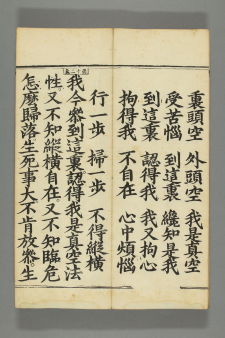 裏頭空　外頭空　我是真空
受苦惱　到這裏　纔知是我
到這裏　認得我　我又拘心
拘得我　不自在　心中煩惱
行一步　掃一步　不得縱橫
我今參到這裏認得我是真空法
性又不知縱橫自在又不知臨危
怎麼歸落生死事大不肯放參生